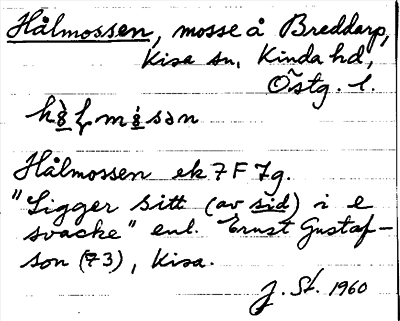 Hålmossen, mosse å Breddarp,
Kisa sn, Kinda hd,
Östg. l.
Hålmossen ek 7 F 7g.
"Ligger sitt (av sid) i e
svacke" enl. Ernst Gustaf-
son (73), Kisa.
J. St. 1960